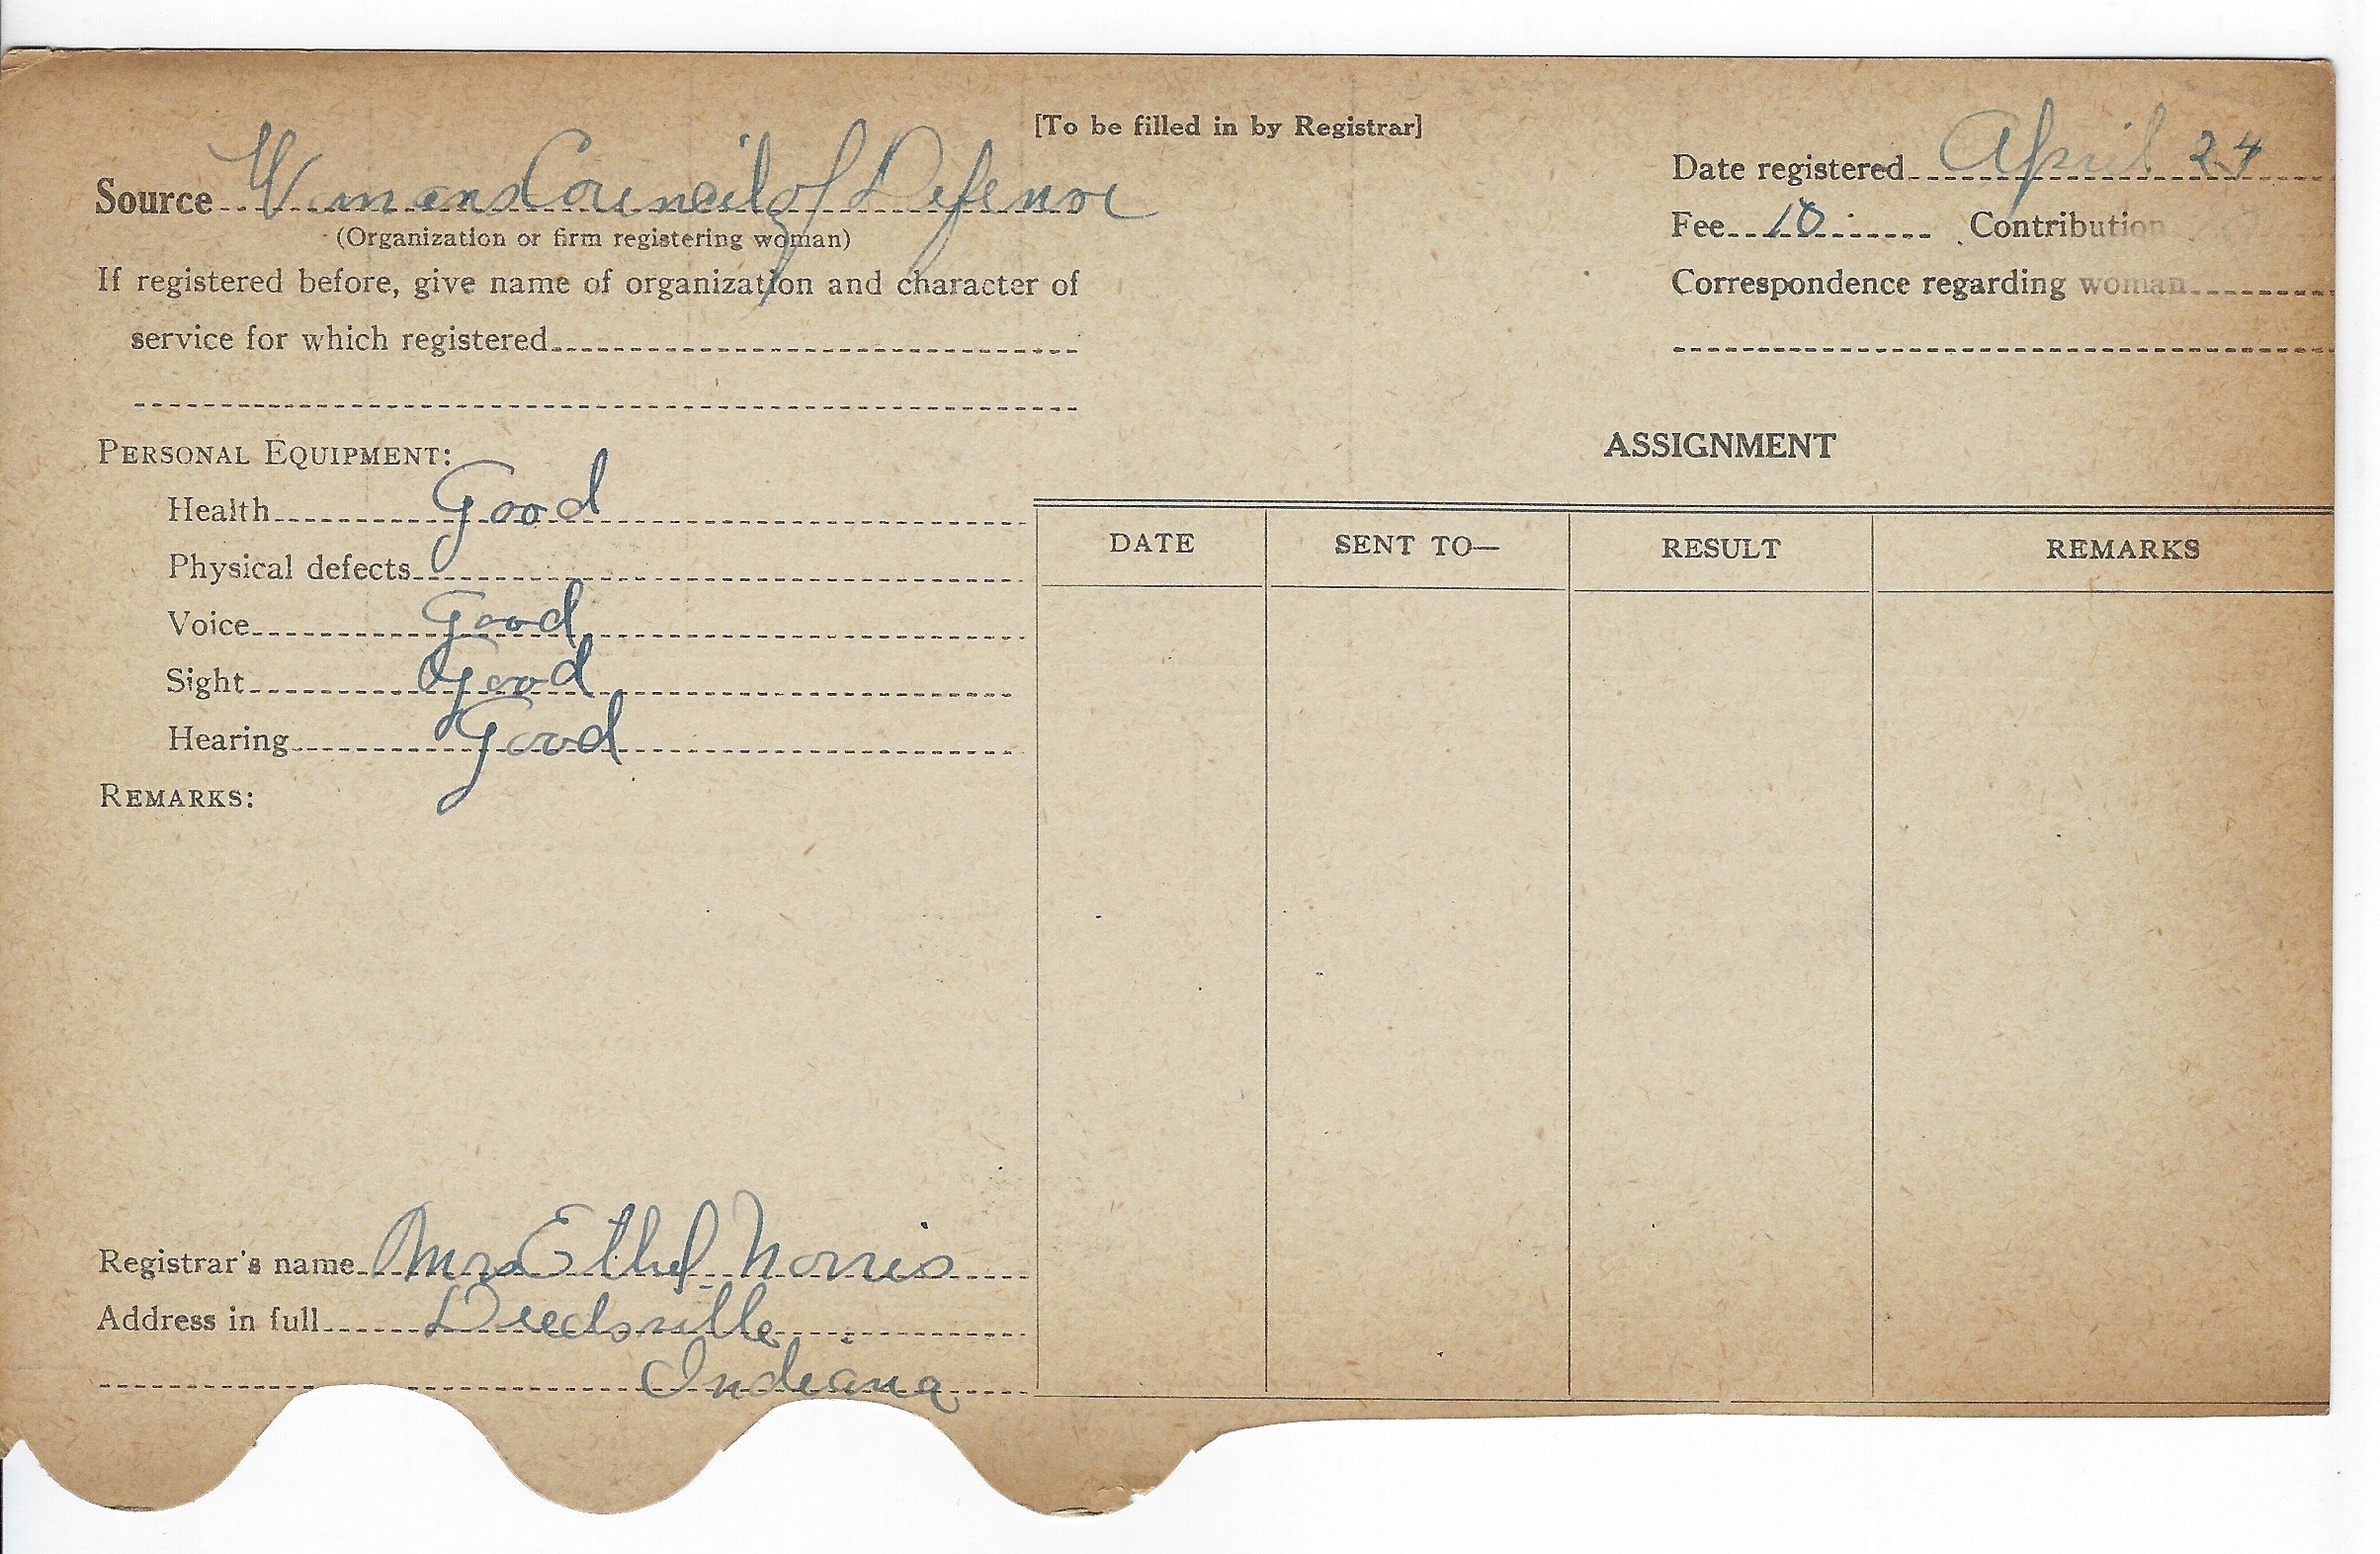 [To be filled in by Registrar]
Source Womans Council of Defense
(Organization or firm registering woman)
If registered before, give name of organization and character of
service for which registered
Date registered April 24
Fee 10 Contribution
Correspondence regarding woman
PERSONAL EQUIPMENT:
Health Good
Physical defects
Voice Good
Sight Good
Hearing Good
REMARKS:
ASSIGNMENT
DATE SENT TO— RESULT REMARKS
Registrar's name Mrs Ethel Norris
Address in full Deedsville
Indiana